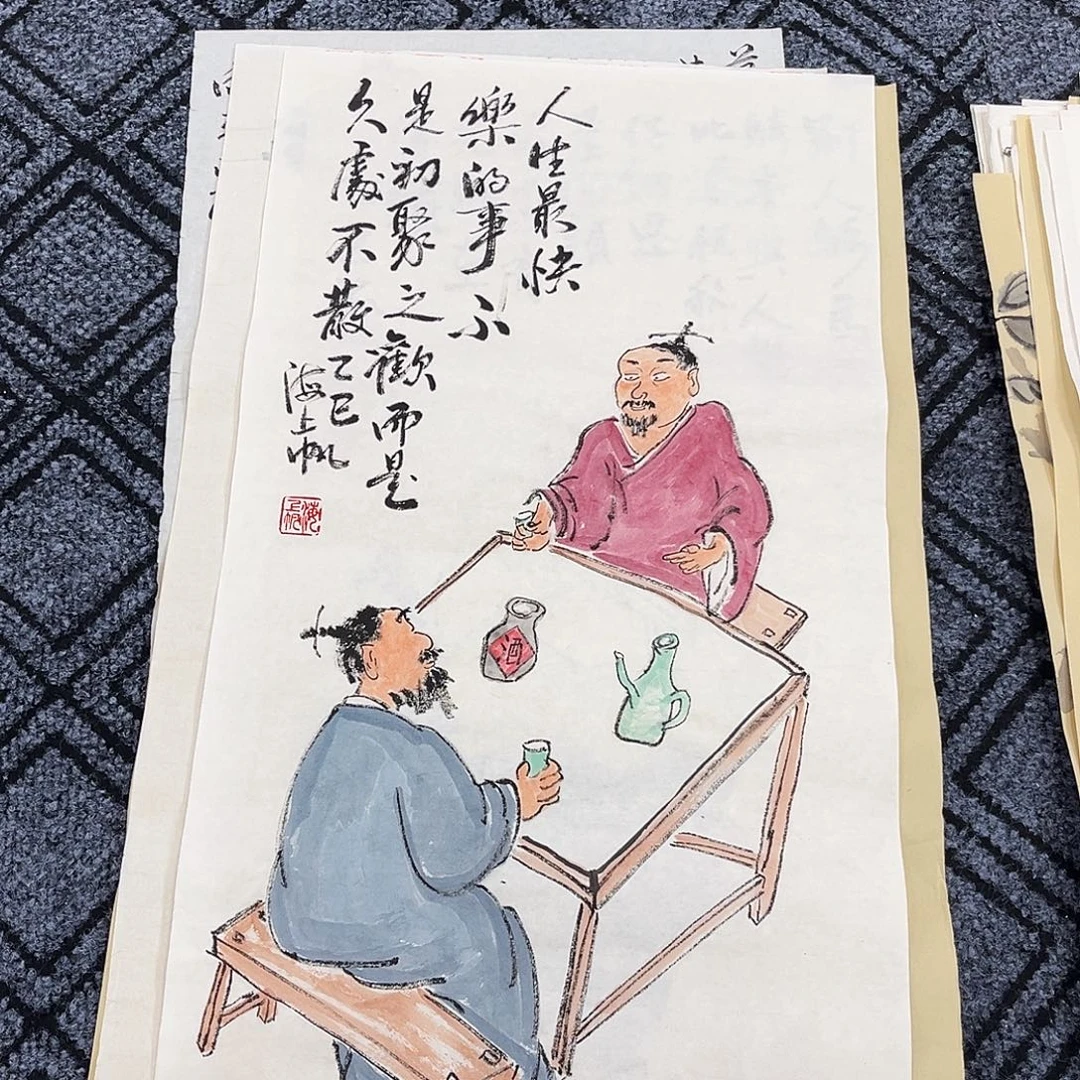 人生最快
樂的事不
是初聚之歡而是
久處不散乙巳
海上帆
酒